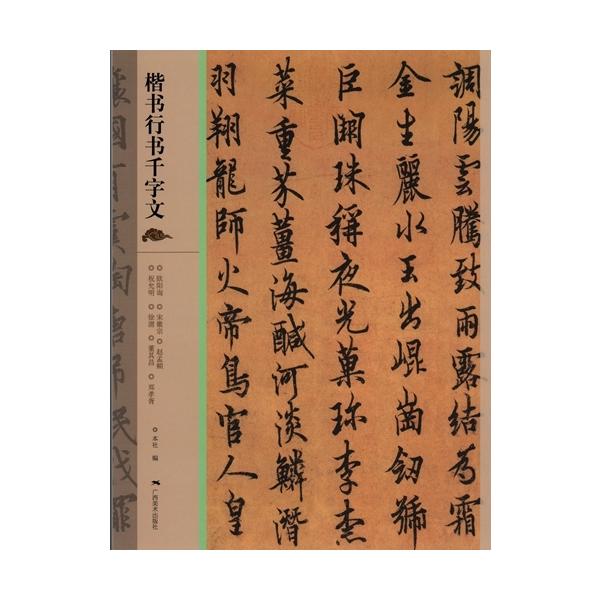 調陽雲騰致雨露結為霜
金生麗水玉出崐崗劒號
巨闕珠稱夜光菓珍李柰
菜重芥薑海鹹河淡鱗潛
羽翔龍師火帝鳥官人皇
楷书行书千字文
欧阳询
宋徽宗
赵孟頫
祝允明
徐渭
董其昌
郑孝胥
本社 编
广西美术出版社
陶唐
民伐罪